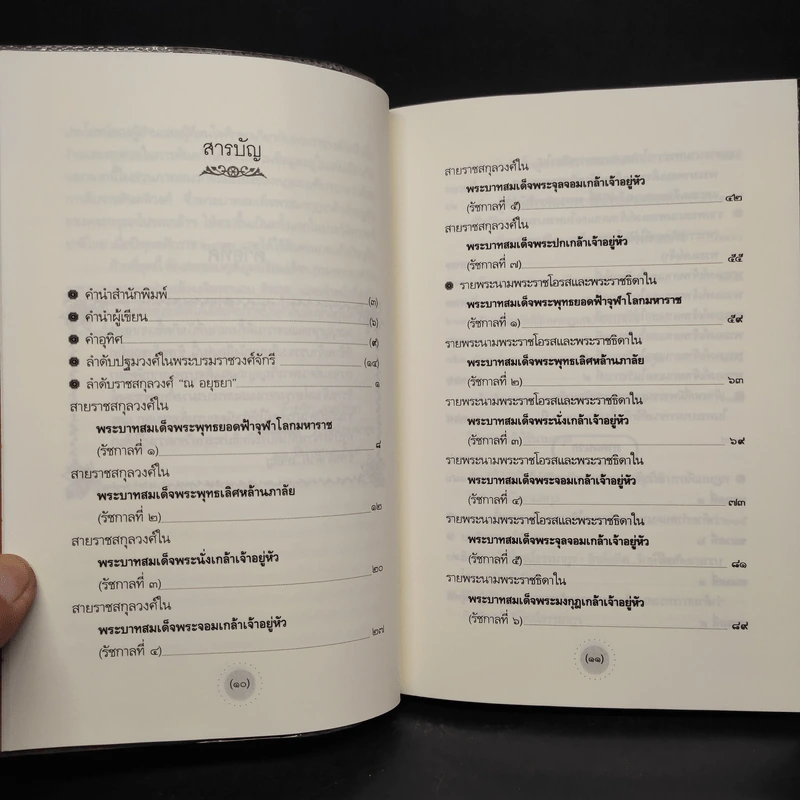 สารบัญ
คำนำสำนักพิมพ์ (๓)
คำนำผู้เขียน (๖)
คำอุทิศ (๙)
ลำดับปฐมวงศ์ในพระบรมราชวงศ์จักรี (๑๔)
ลำดับราชสกุลวงศ์ “ณ อยุธยา” ๑
สายราชสกุลวงศ์ใน
พระบาทสมเด็จพระพุทธยอดฟ้าจุฬาโลกมหาราช
(รัชกาลที่ ๑) ๘
สายราชสกุลวงศ์ใน
พระบาทสมเด็จพระพุทธเลิศหล้านภาลัย
(รัชกาลที่ ๒) ๑๒
สายราชสกุลวงศ์ใน
พระบาทสมเด็จพระนั่งเกล้าเจ้าอยู่หัว
(รัชกาลที่ ๓) ๒๐
สายราชสกุลวงศ์ใน
พระบาทสมเด็จพระจอมเกล้าเจ้าอยู่หัว
(รัชกาลที่ ๔) ๒๗
(๑๐)
สายราชสกุลวงศ์ใน
พระบาทสมเด็จพระจุลจอมเกล้าเจ้าอยู่หัว
(รัชกาลที่ ๕) ๔๒
สายราชสกุลวงศ์ใน
พระบาทสมเด็จพระปกเกล้าเจ้าอยู่หัว
(รัชกาลที่ ๗) ๕๕
รายพระนามพระราชโอรสและพระราชธิดาใน
พระบาทสมเด็จพระพุทธยอดฟ้าจุฬาโลกมหาราช
(รัชกาลที่ ๑) ๕๙
รายพระนามพระราชโอรสและพระราชธิดาใน
พระบาทสมเด็จพระพุทธเลิศหล้านภาลัย
(รัชกาลที่ ๒) ๖๓
รายพระนามพระราชโอรสและพระราชธิดาใน
พระบาทสมเด็จพระนั่งเกล้าเจ้าอยู่หัว
(รัชกาลที่ ๓) ๖๙
รายพระนามพระราชโอรสและพระราชธิดาใน
พระบาทสมเด็จพระจอมเกล้าเจ้าอยู่หัว
(รัชกาลที่ ๔) ๗๓
รายพระนามพระราชโอรสและพระราชธิดาใน
พระบาทสมเด็จพระจุลจอมเกล้าเจ้าอยู่หัว
(รัชกาลที่ ๕) ๘๑
รายพระนามพระราชธิดาใน
พระบาทสมเด็จพระมงกุฎเกล้าเจ้าอยู่หัว
(รัชกาลที่ ๖) ๘๙
(๑๑)